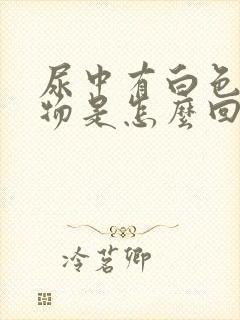 尿中有白色
物是怎麼回
冷茗卿